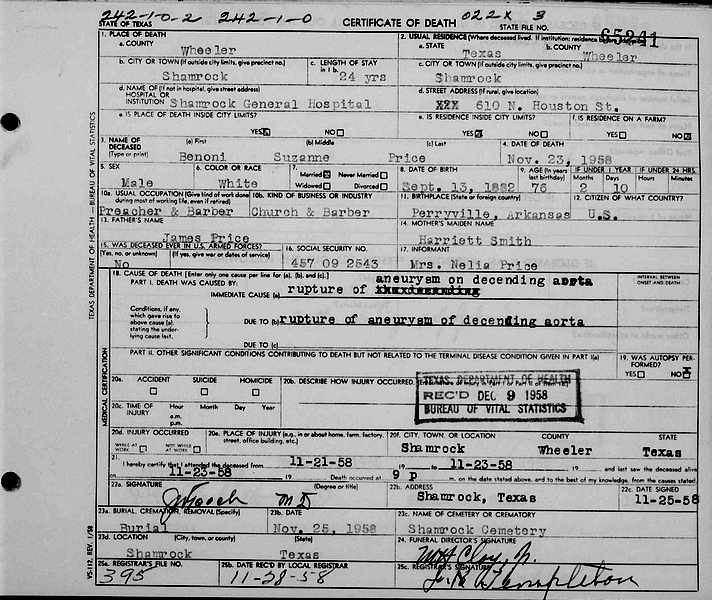 242-1-0-2 242-1-0 022X 3
STATE OF TEXAS CERTIFICATE OF DEATH STATE FILE NO. 65241
1. PLACE OF DEATH 2. USUAL RESIDENCE (Where deceased lived. If institution: residence before admission)
a. COUNTY Wheeler a. STATE Texas b. COUNTY Wheeler
b. CITY OR TOWN (If outside city limits, give precinct no.) c. LENGTH OF STAY in 1 b c. CITY OR TOWN (If outside city limits, give precinct no.)
Shamrock 24 yrs Shamrock
d. NAME OF (If not in hospital, give street address) HOSPITAL OR INSTITUTION Shamrock General Hospital d. STREET ADDRESS (If rural, give location) XXX 610 N. Houston St.
e. IS PLACE OF DEATH INSIDE CITY LIMITS? e. IS RESIDENCE INSIDE CITY LIMITS? f. IS RESIDENCE ON A FARM?
YES☒ NO☐ YES☒ NO☐ YES☐ NO☒
3. NAME OF DECEASED (Type or print) (a) First (b) Middle (c) Last 4. DATE OF DEATH
Benoni Suzanne Price Nov. 23, 1958
5. SEX 6. COLOR OR RACE 7. Married☒ Never Married☐ 8. DATE OF BIRTH 9. AGE (In years last birthday) IF UNDER 1 YEAR IF UNDER 24 HRS.
Months Days Hours Minutes
Male White Widowed☐ Divorced☐ Sept. 13, 1882 76 2 10
10a. USUAL OCCUPATION (Give kind of work done during most of working life, even if retired) 10b. KIND OF BUSINESS OR INDUSTRY 11. BIRTHPLACE (State or foreign country) 12. CITIZEN OF WHAT COUNTRY?
Preacher & Barber Church & Barber Perryville, Arkansas U.S.
13. FATHER'S NAME 14. MOTHER'S MAIDEN NAME
James Price Harriett Smith
15. WAS DECEASED EVER IN U.S. ARMED FORCES? 16. SOCIAL SECURITY NO. 17. INFORMANT
(Yes, no, or unknown) (If yes, give war or dates of service)
No 457 09 2543 Mrs. Nelia Price
18. CAUSE OF DEATH [Enter only one cause per line for (a), (b), and (c).] INTERVAL BETWEEN ONSET AND DEATH
PART I. DEATH WAS CAUSED BY: aneurysm on decending aorta
IMMEDIATE CAUSE (a) rupture of
Conditions, if any, which gave rise to above cause (a), stating the underlying cause last.
DUE TO (b) rupture of aneurysm of decending aorta
DUE TO (c)
PART II. OTHER SIGNIFICANT CONDITIONS CONTRIBUTING TO DEATH BUT NOT RELATED TO THE TERMINAL DISEASE CONDITION GIVEN IN PART I(a) 19. WAS AUTOPSY PERFORMED? YES☐ NO☒
20a. ACCIDENT SUICIDE HOMICIDE 20b. DESCRIBE HOW INJURY OCCURRED.
TEXAS DEPARTMENT OF HEALTH
REC'D DEC 9 1958
BUREAU OF VITAL STATISTICS
20c. TIME OF INJURY Hour a.m. p.m. Month Day Year
20d. INJURY OCCURRED WHILE AT WORK☐ NOT WHILE AT WORK☐ 20e. PLACE OF INJURY (e.g., in or about home, farm, factory, street, office building, etc.) 20f. CITY, TOWN, OR LOCATION COUNTY STATE
Shamrock Wheeler Texas
21. I hereby certify that I attended the deceased from 11-21-58 19 to 11-23-58 19 and last saw the deceased alive
on 11-23-58 19 Death occurred at 9 p m. on the date stated above, and to the best of my knowledge, from the causes stated.
22a. SIGNATURE (Degree or title) 22b. ADDRESS 22c. DATE SIGNED
M D Shamrock, Texas 11-25-58
23a. BURIAL, CREMATION, REMOVAL (Specify) 23b. DATE 23c. NAME OF CEMETERY OR CREMATORY
Burial Nov. 25, 1958 Shamrock Cemetery
23d. LOCATION (City, town, or county) (State) 24. FUNERAL DIRECTOR'S SIGNATURE
Shamrock Texas
25a. REGISTRAR'S FILE NO. 25b. DATE REC'D BY LOCAL REGISTRAR 25c. REGISTRAR'S SIGNATURE
395 11-28-58 Templeton
TEXAS DEPARTMENT OF HEALTH — BUREAU OF VITAL STATISTICS
MEDICAL CERTIFICATION
VS-112, REV. 1/58